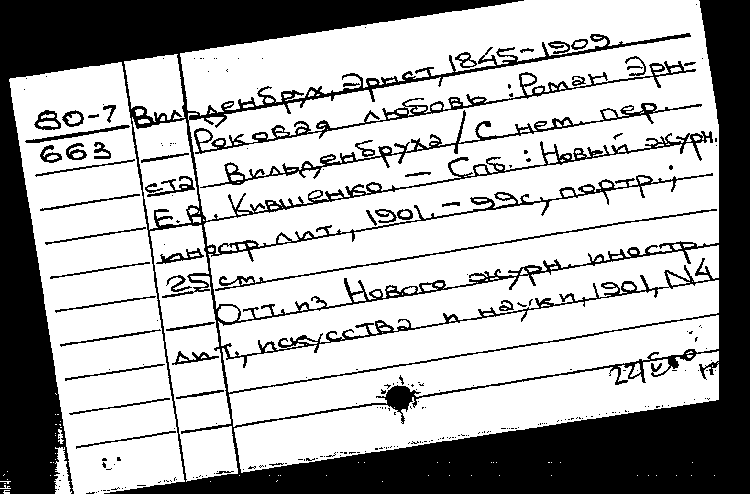 80-7
663
Вильденбрух, Эрнст, 1845-1909.
Роковая любовь : Роман Эрн-
ста Вильденбруха / С нем. пер.
Е.В. Кившенко. — Спб. : Новый журн.
иностр. лит., 1901. - 99с, портр.;
25 см.
Отт. из Нового журн. иностр.
лит., искусства и науки, 1901, N4